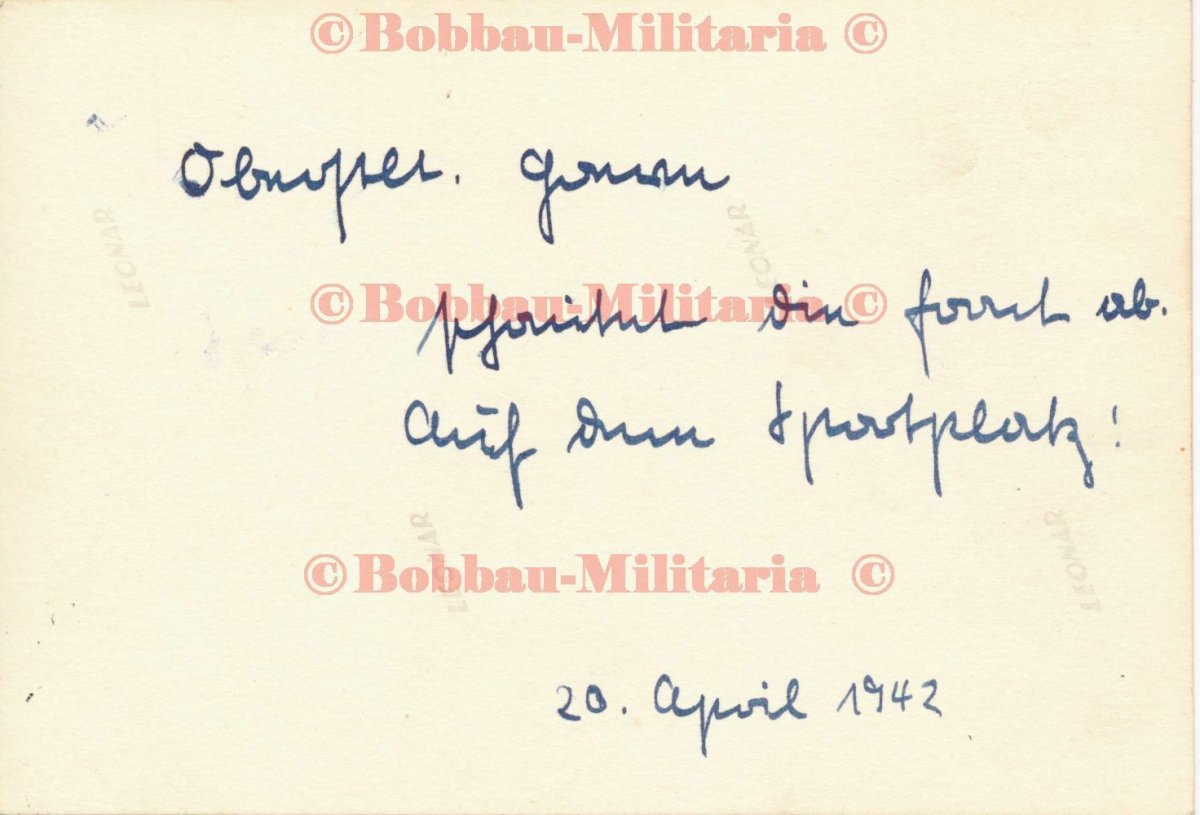 © Bobbau-Militaria ©
Oberstlt.
LEONAR LEONAR
© Bobbau-Militaria ©
schreitet die Front ab.
Auf dem Sportplatz!
LEONAR LEONAR
© Bobbau-Militaria ©
20. April 1942